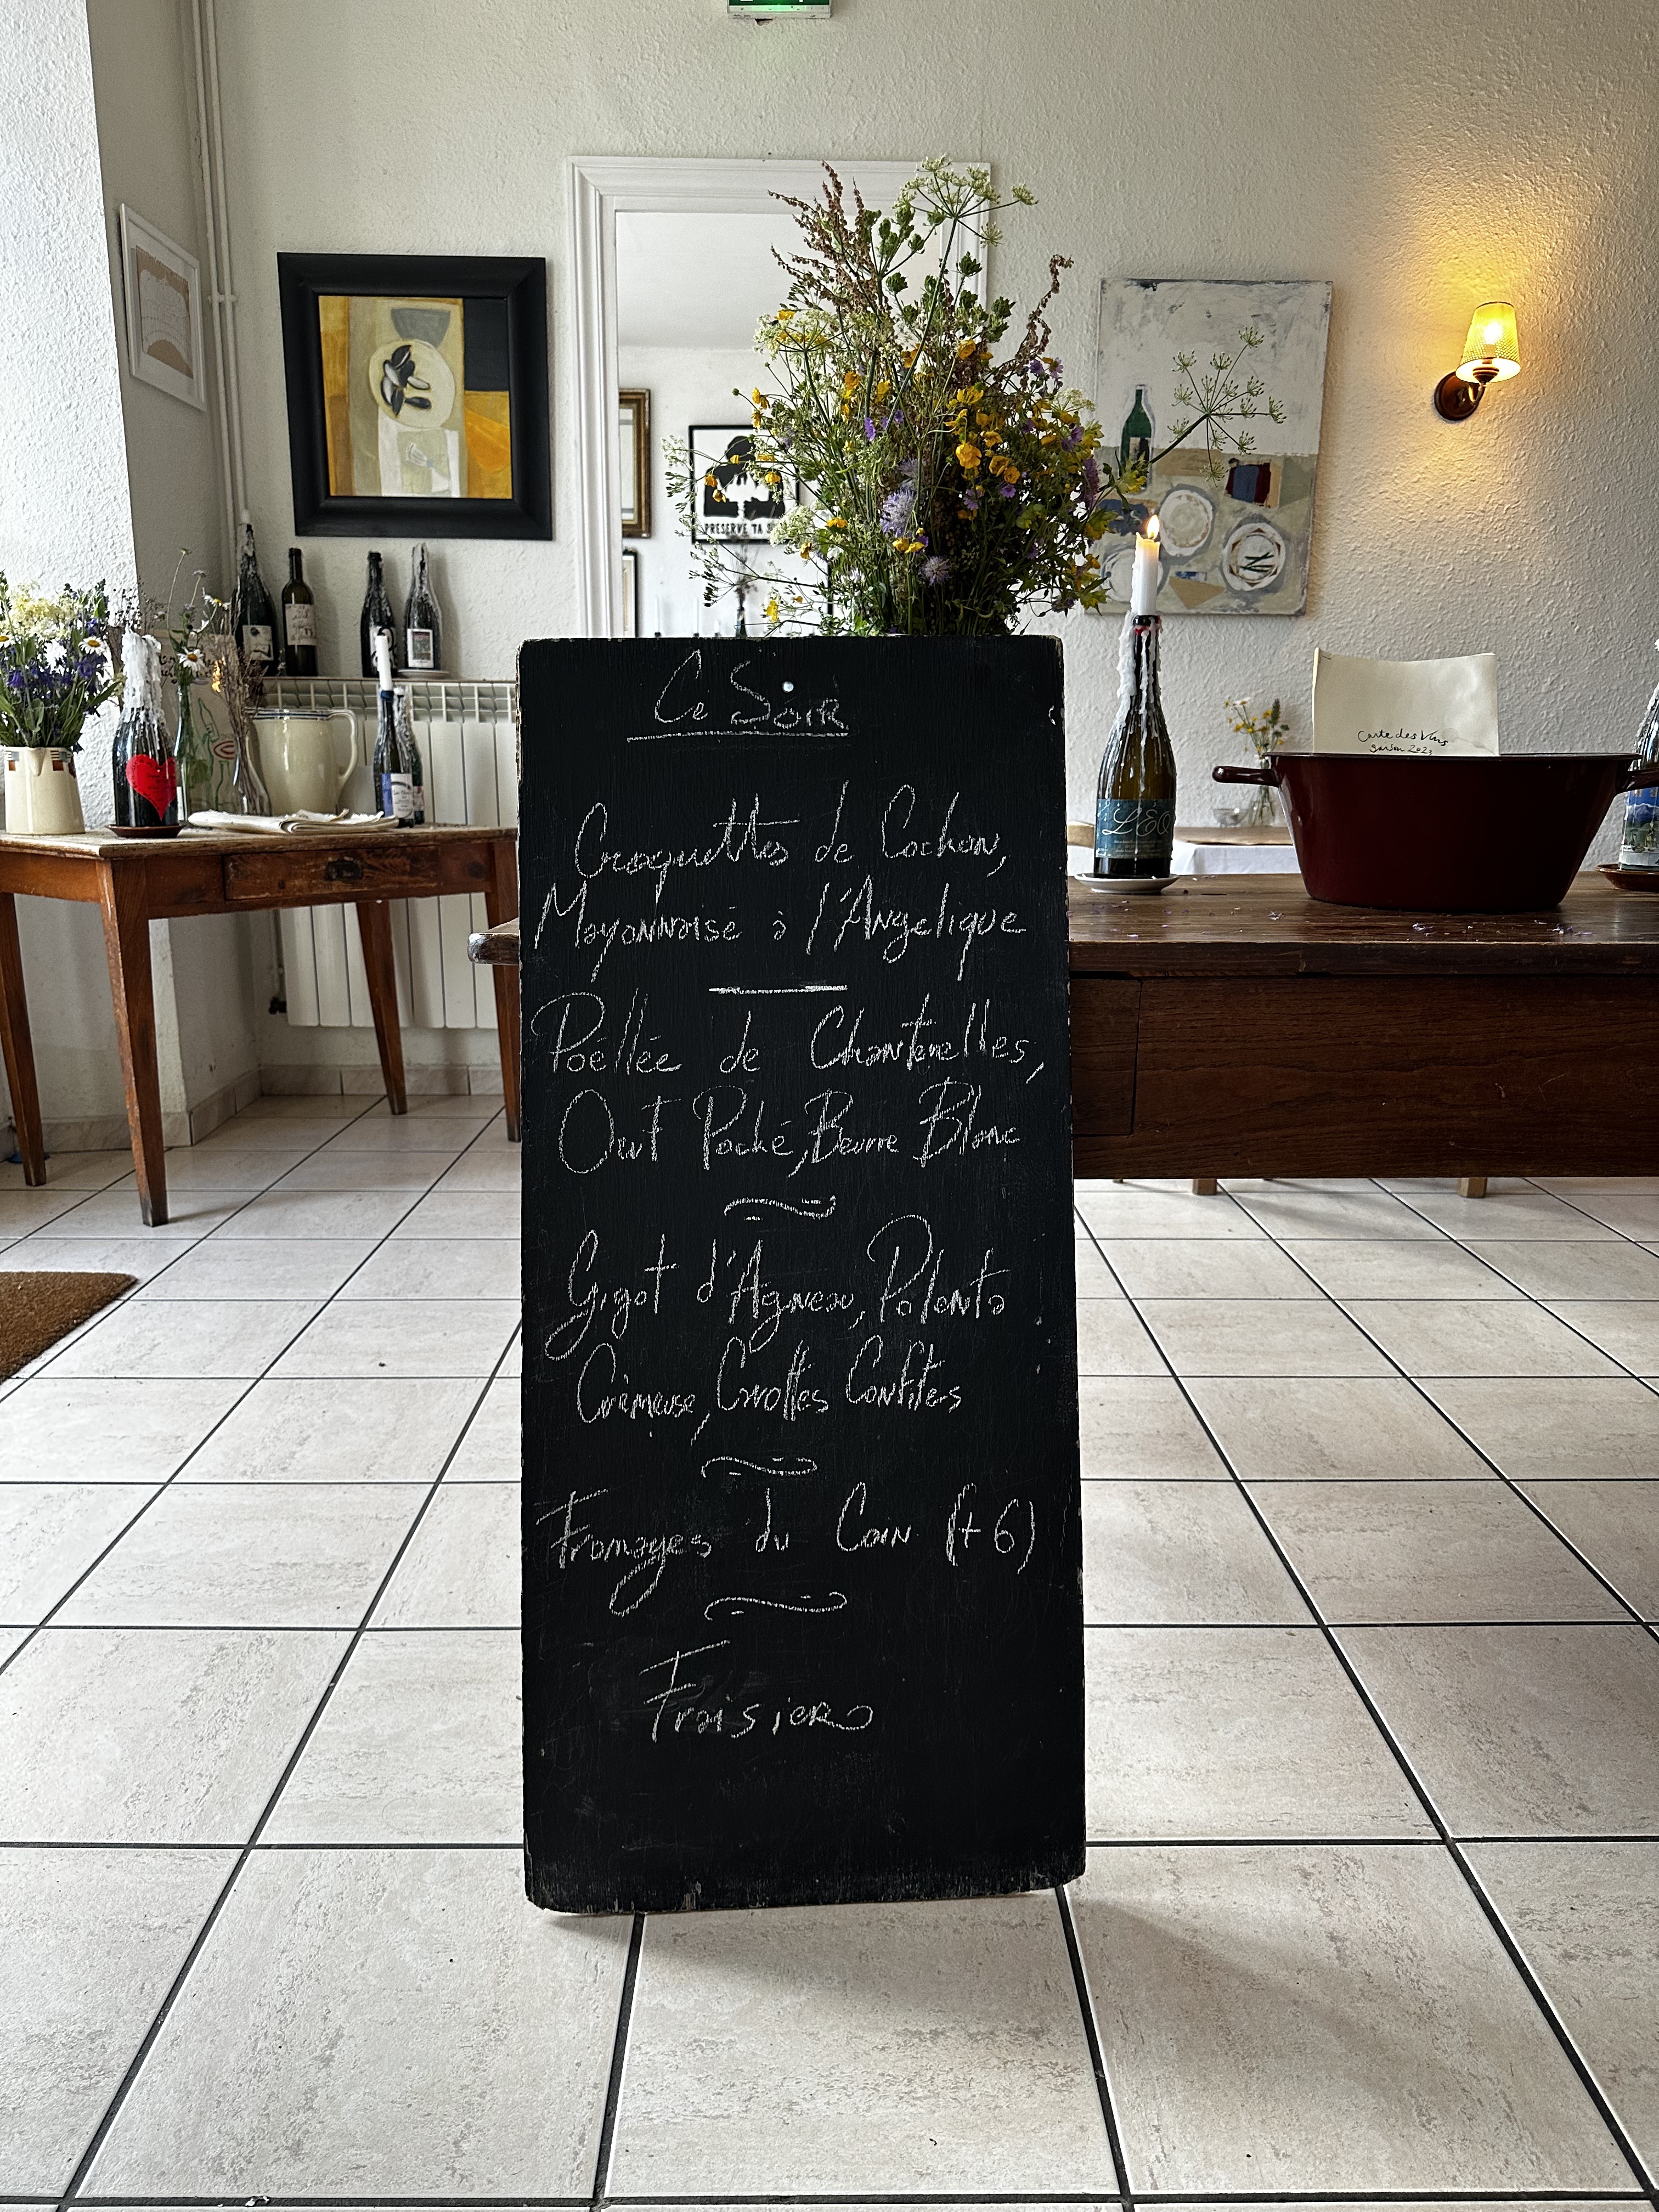 PRESERVE TA
Ce Soir
Carte des Vins
saison 2023
L'ÉO
Croquettes de Cochon,
Mayonnaise à l'Angelique
Poëllée de Chanterelles,
Oeuf Poché, Beurre Blanc
Gigot d'Agneau, Polenta
Crèmeuse, Carottes Confites
Fromages du Coin (+6)
Fraisier